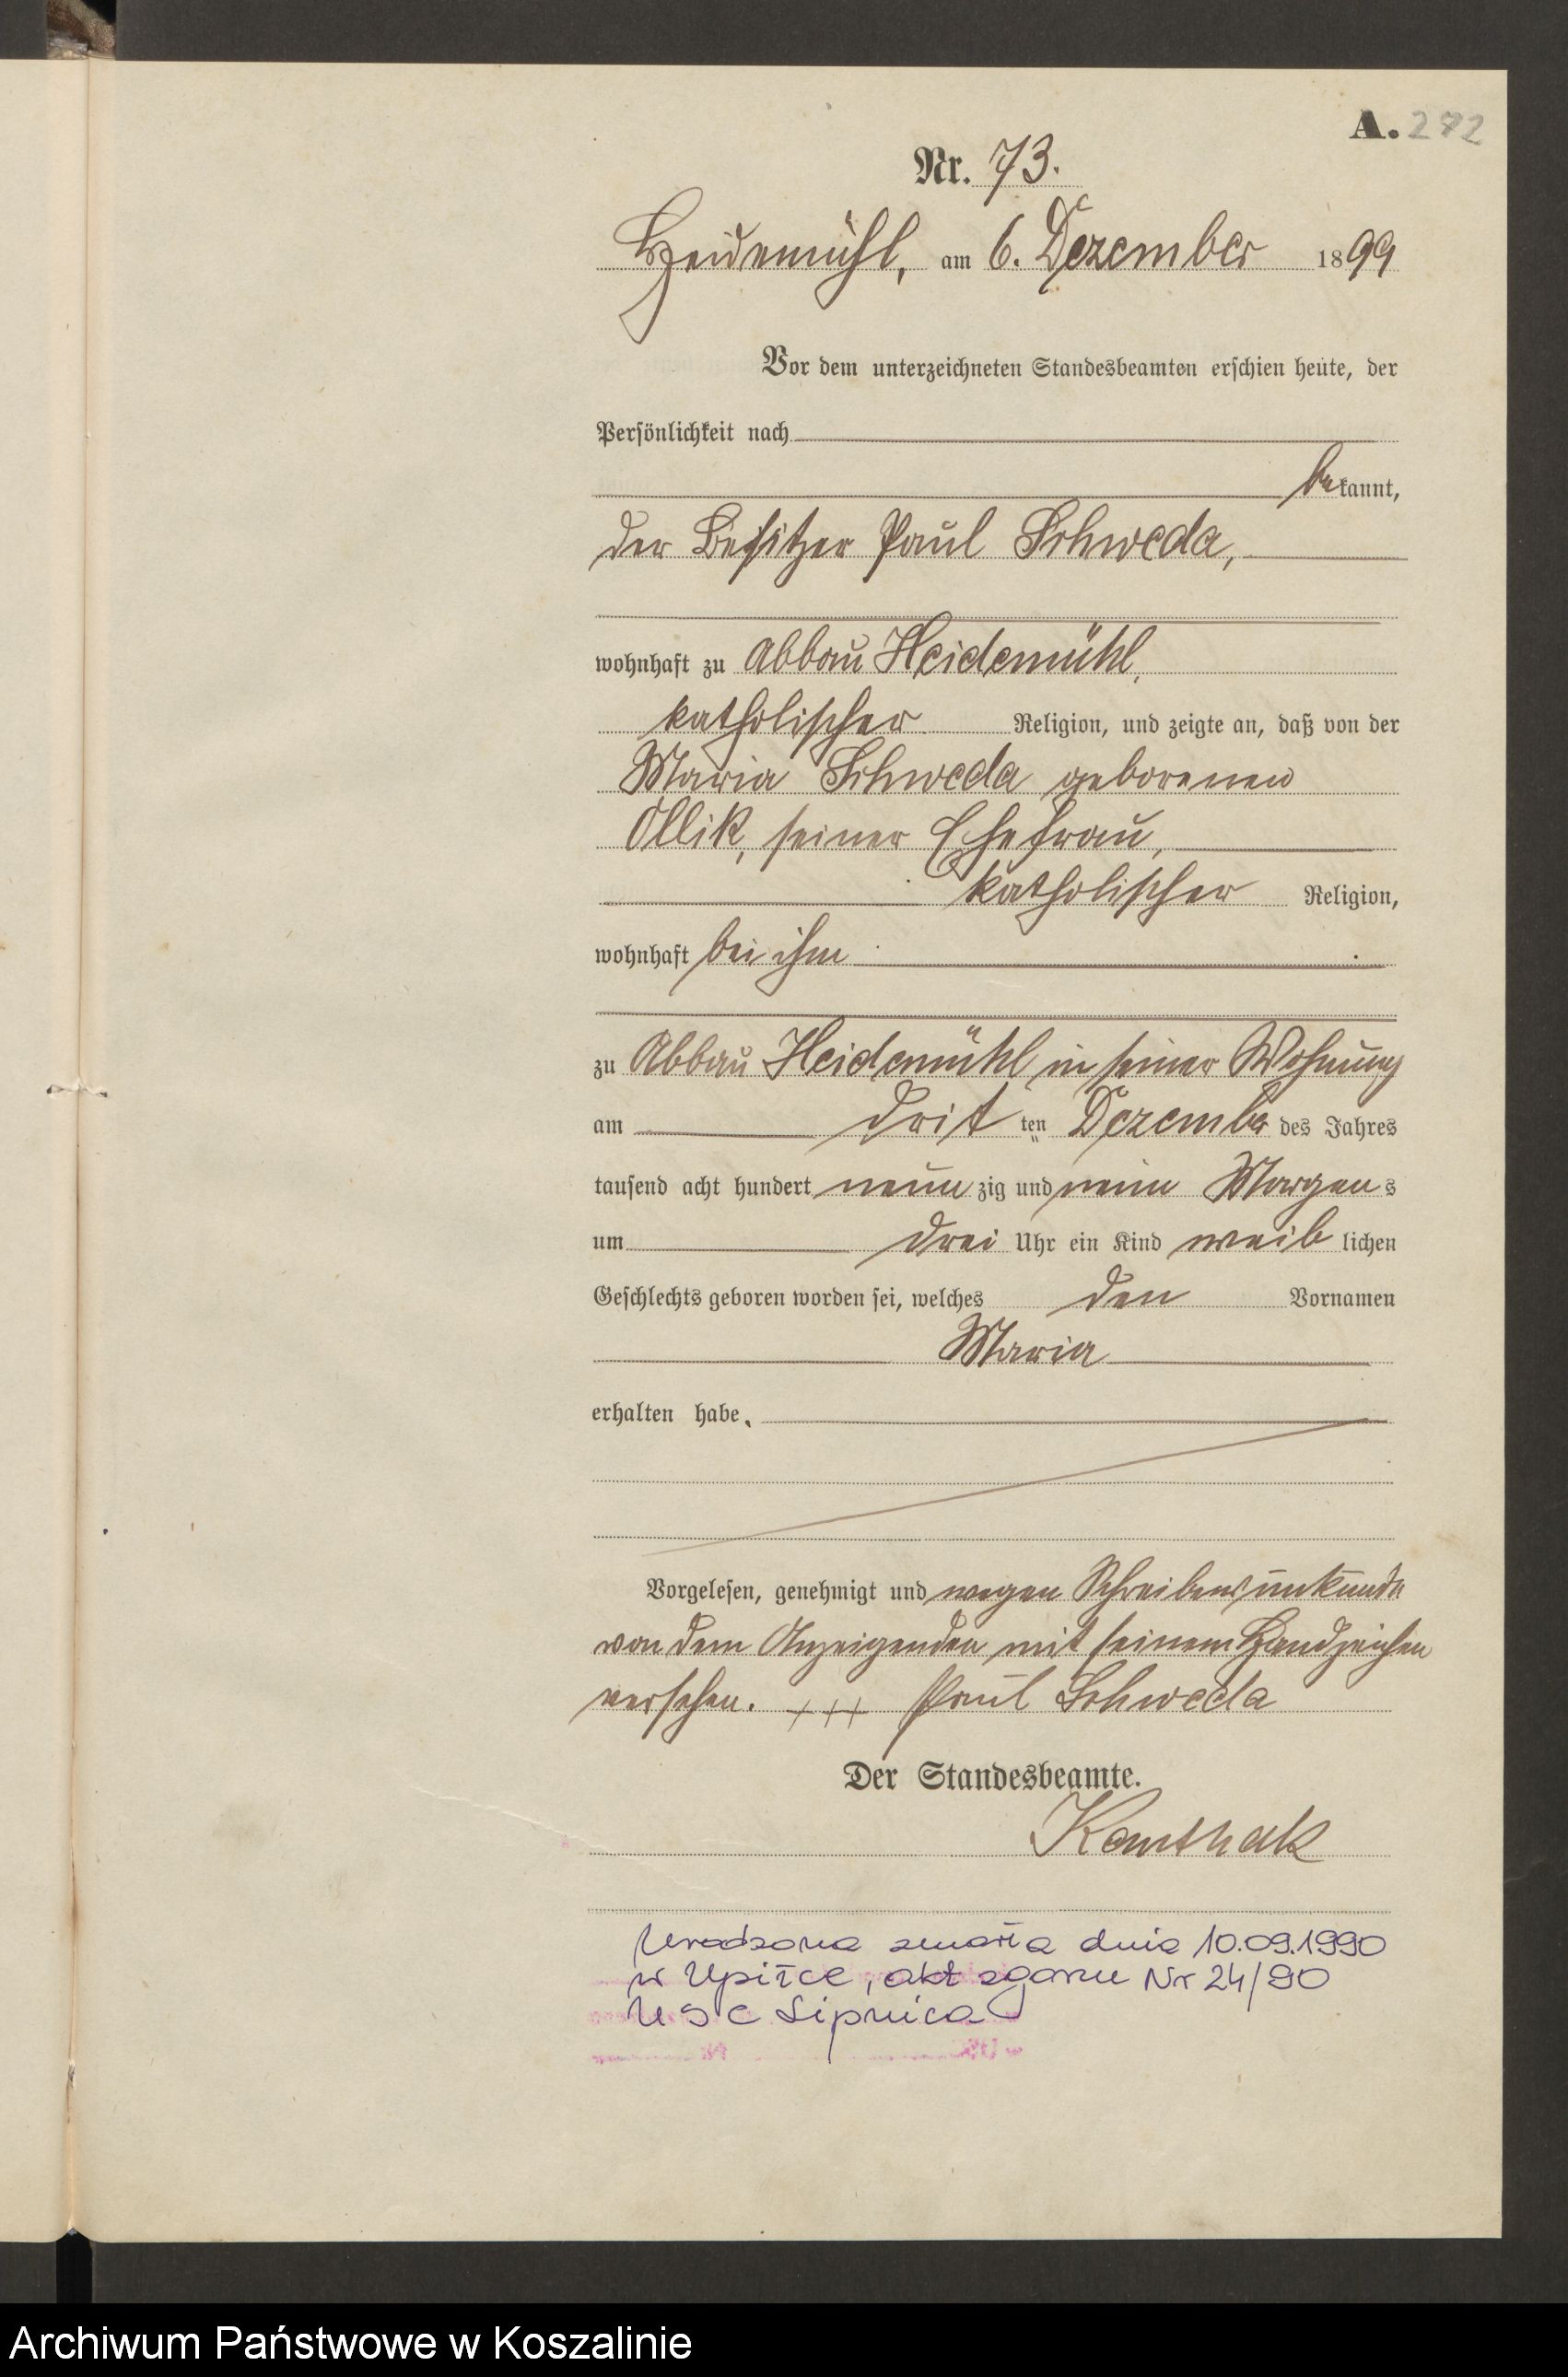 A. 272
Nr. 73.
Heidemühl, am 6. Dezember 1899
Vor dem unterzeichneten Standesbeamten erschien heute, der
Persönlichkeit nach
bekannt,
der Besitzer Paul Schweda,
wohnhaft zu Abbau Heidemühl,
katholischer Religion, und zeigte an, daß von der
Maria Schweda geborenen
Ollik, seiner Ehefrau,
katholischer Religion,
wohnhaft bei ihm
zu Abbau Heidemühl in seiner Wohnung
am dritten Dezember des Jahres
tausend acht hundert neunzig und neun Morgens
um drei Uhr ein Kind weiblichen
Geschlechts geboren worden sei, welches den Vornamen
Maria
erhalten habe.
Vorgelesen, genehmigt und wegen Schreibensunkunde
von dem Anzeigenden mit seinem Handzeichen
versehen. +++ Paul Schweda
Der Standesbeamte.
Kanthak
Urodzona zmarła dnia 10.09.1990
w Upiłce, akt zgonu Nr 24/90
USC Lipnica
Archiwum Państwowe w Koszalinie